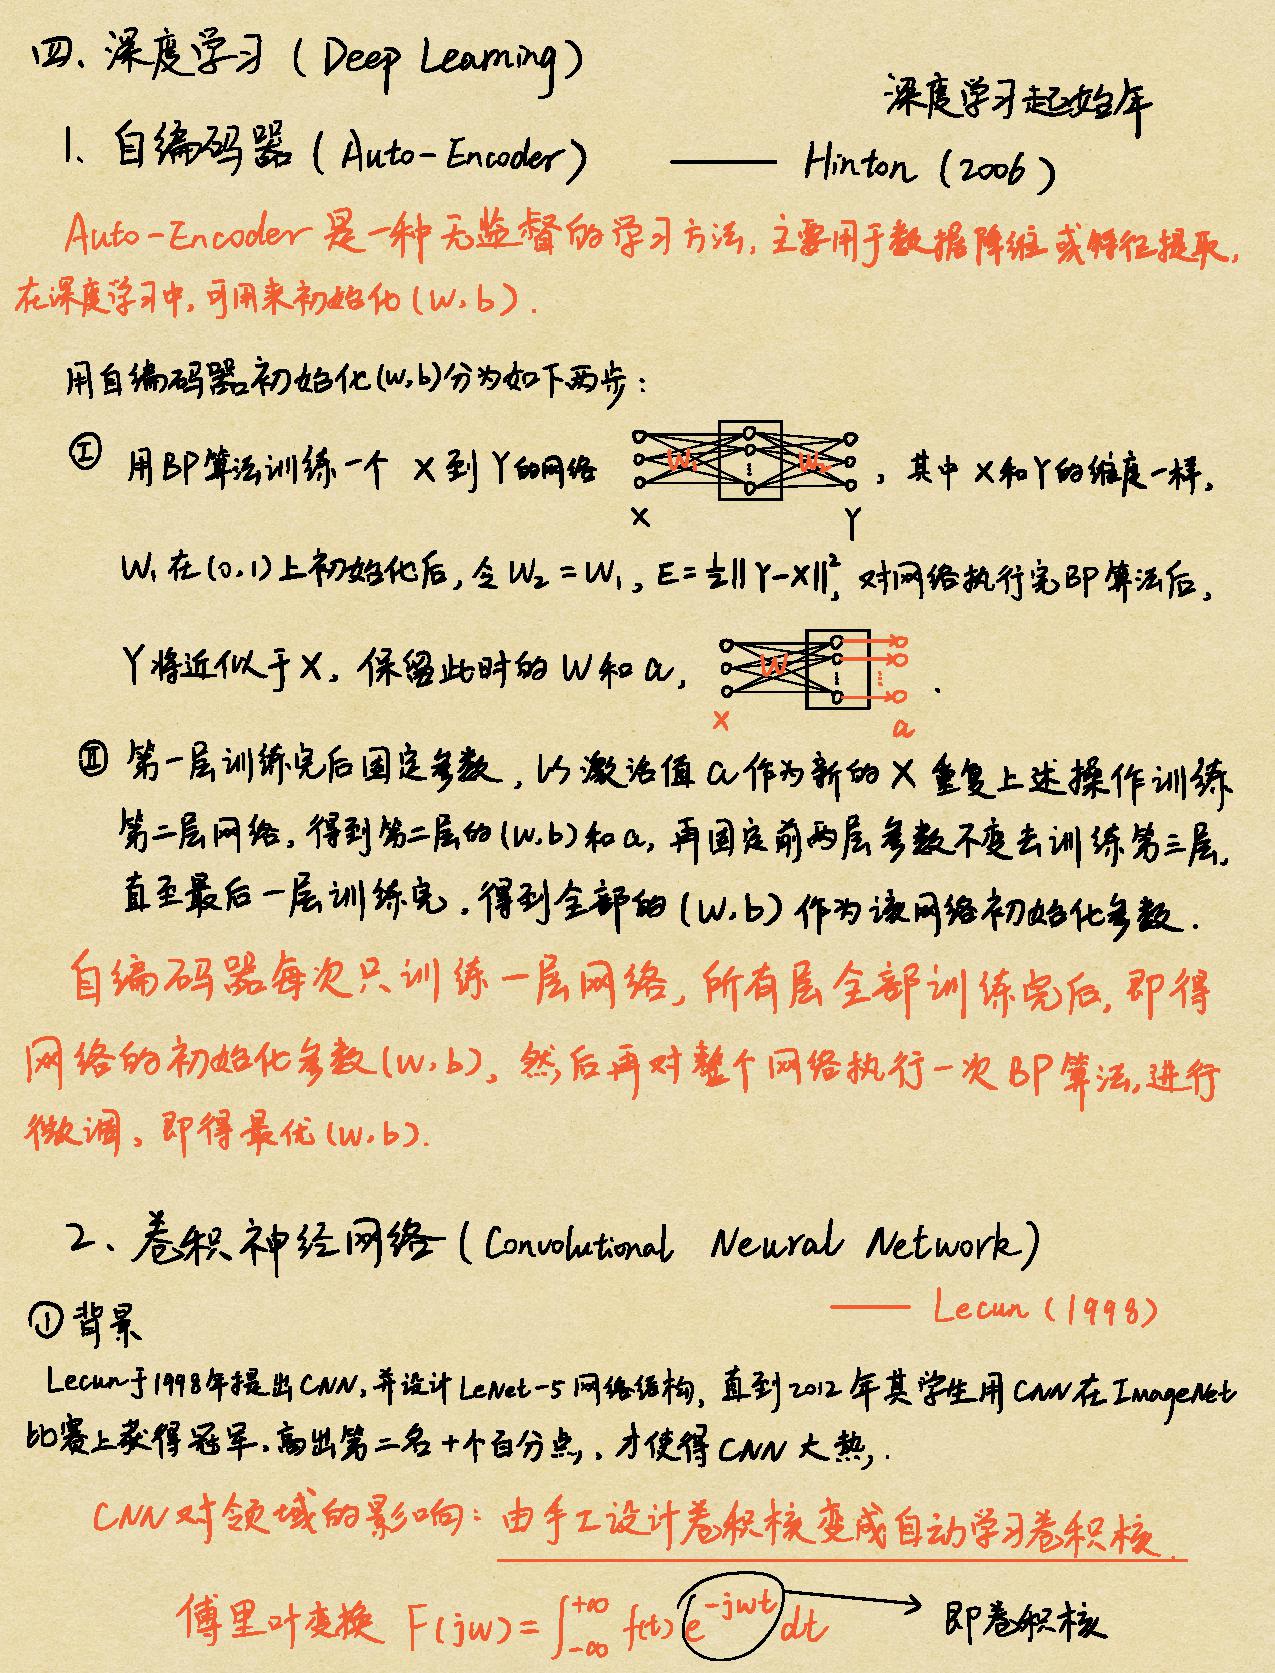 四、深度学习 (Deep Learning)
深度学习起始年
1、自编码器 (Auto-Encoder) —— Hinton (2006)
Auto-Encoder 是一种无监督的学习方法, 主要用于数据降维或特征提取,
在深度学习中, 可用来初始化 (W, b).
用自编码器初始化(W,b)分为如下两步:
Ⅰ 用BP算法训练一个 X 到 Y 的网络 W₁ W₂ X Y , 其中 X 和 Y 的维度一样,
W₁ 在 (0,1) 上初始化后, 令 W₂ = W₁, E = ½||Y-X||², 对网络执行完BP算法后,
Y将近似于 X, 保留此时的 W 和 a, W X a .
Ⅱ 第一层训练完后固定参数, 以激活值 a 作为新的 X 重复上述操作训练
第二层网络, 得到第二层的(W,b)和a, 再固定前两层参数不变去训练第三层,
直至最后一层训练完, 得到全部的 (W,b) 作为该网络初始化参数.
自编码器每次只训练一层网络, 所有层全部训练完后, 即得
网络的初始化参数(W,b), 然后再对整个网络执行一次BP算法, 进行
微调, 即得最优(W,b).
2、卷积神经网络 (Convolutional Neural Network)
—— Lecun (1998)
① 背景
Lecun于1998年提出CNN, 并设计LeNet-5网络结构, 直到2012年其学生用CNN在ImageNet
比赛上获得冠军, 高出第二名十个百分点, 才使得CNN大热,.
CNN对领域的影响: 由手工设计卷积核变成自动学习卷积核.
傅里叶变换 F(jw) = ∫_{-∞}^{+∞} f(t) e^{-jwt} dt → 即卷积核